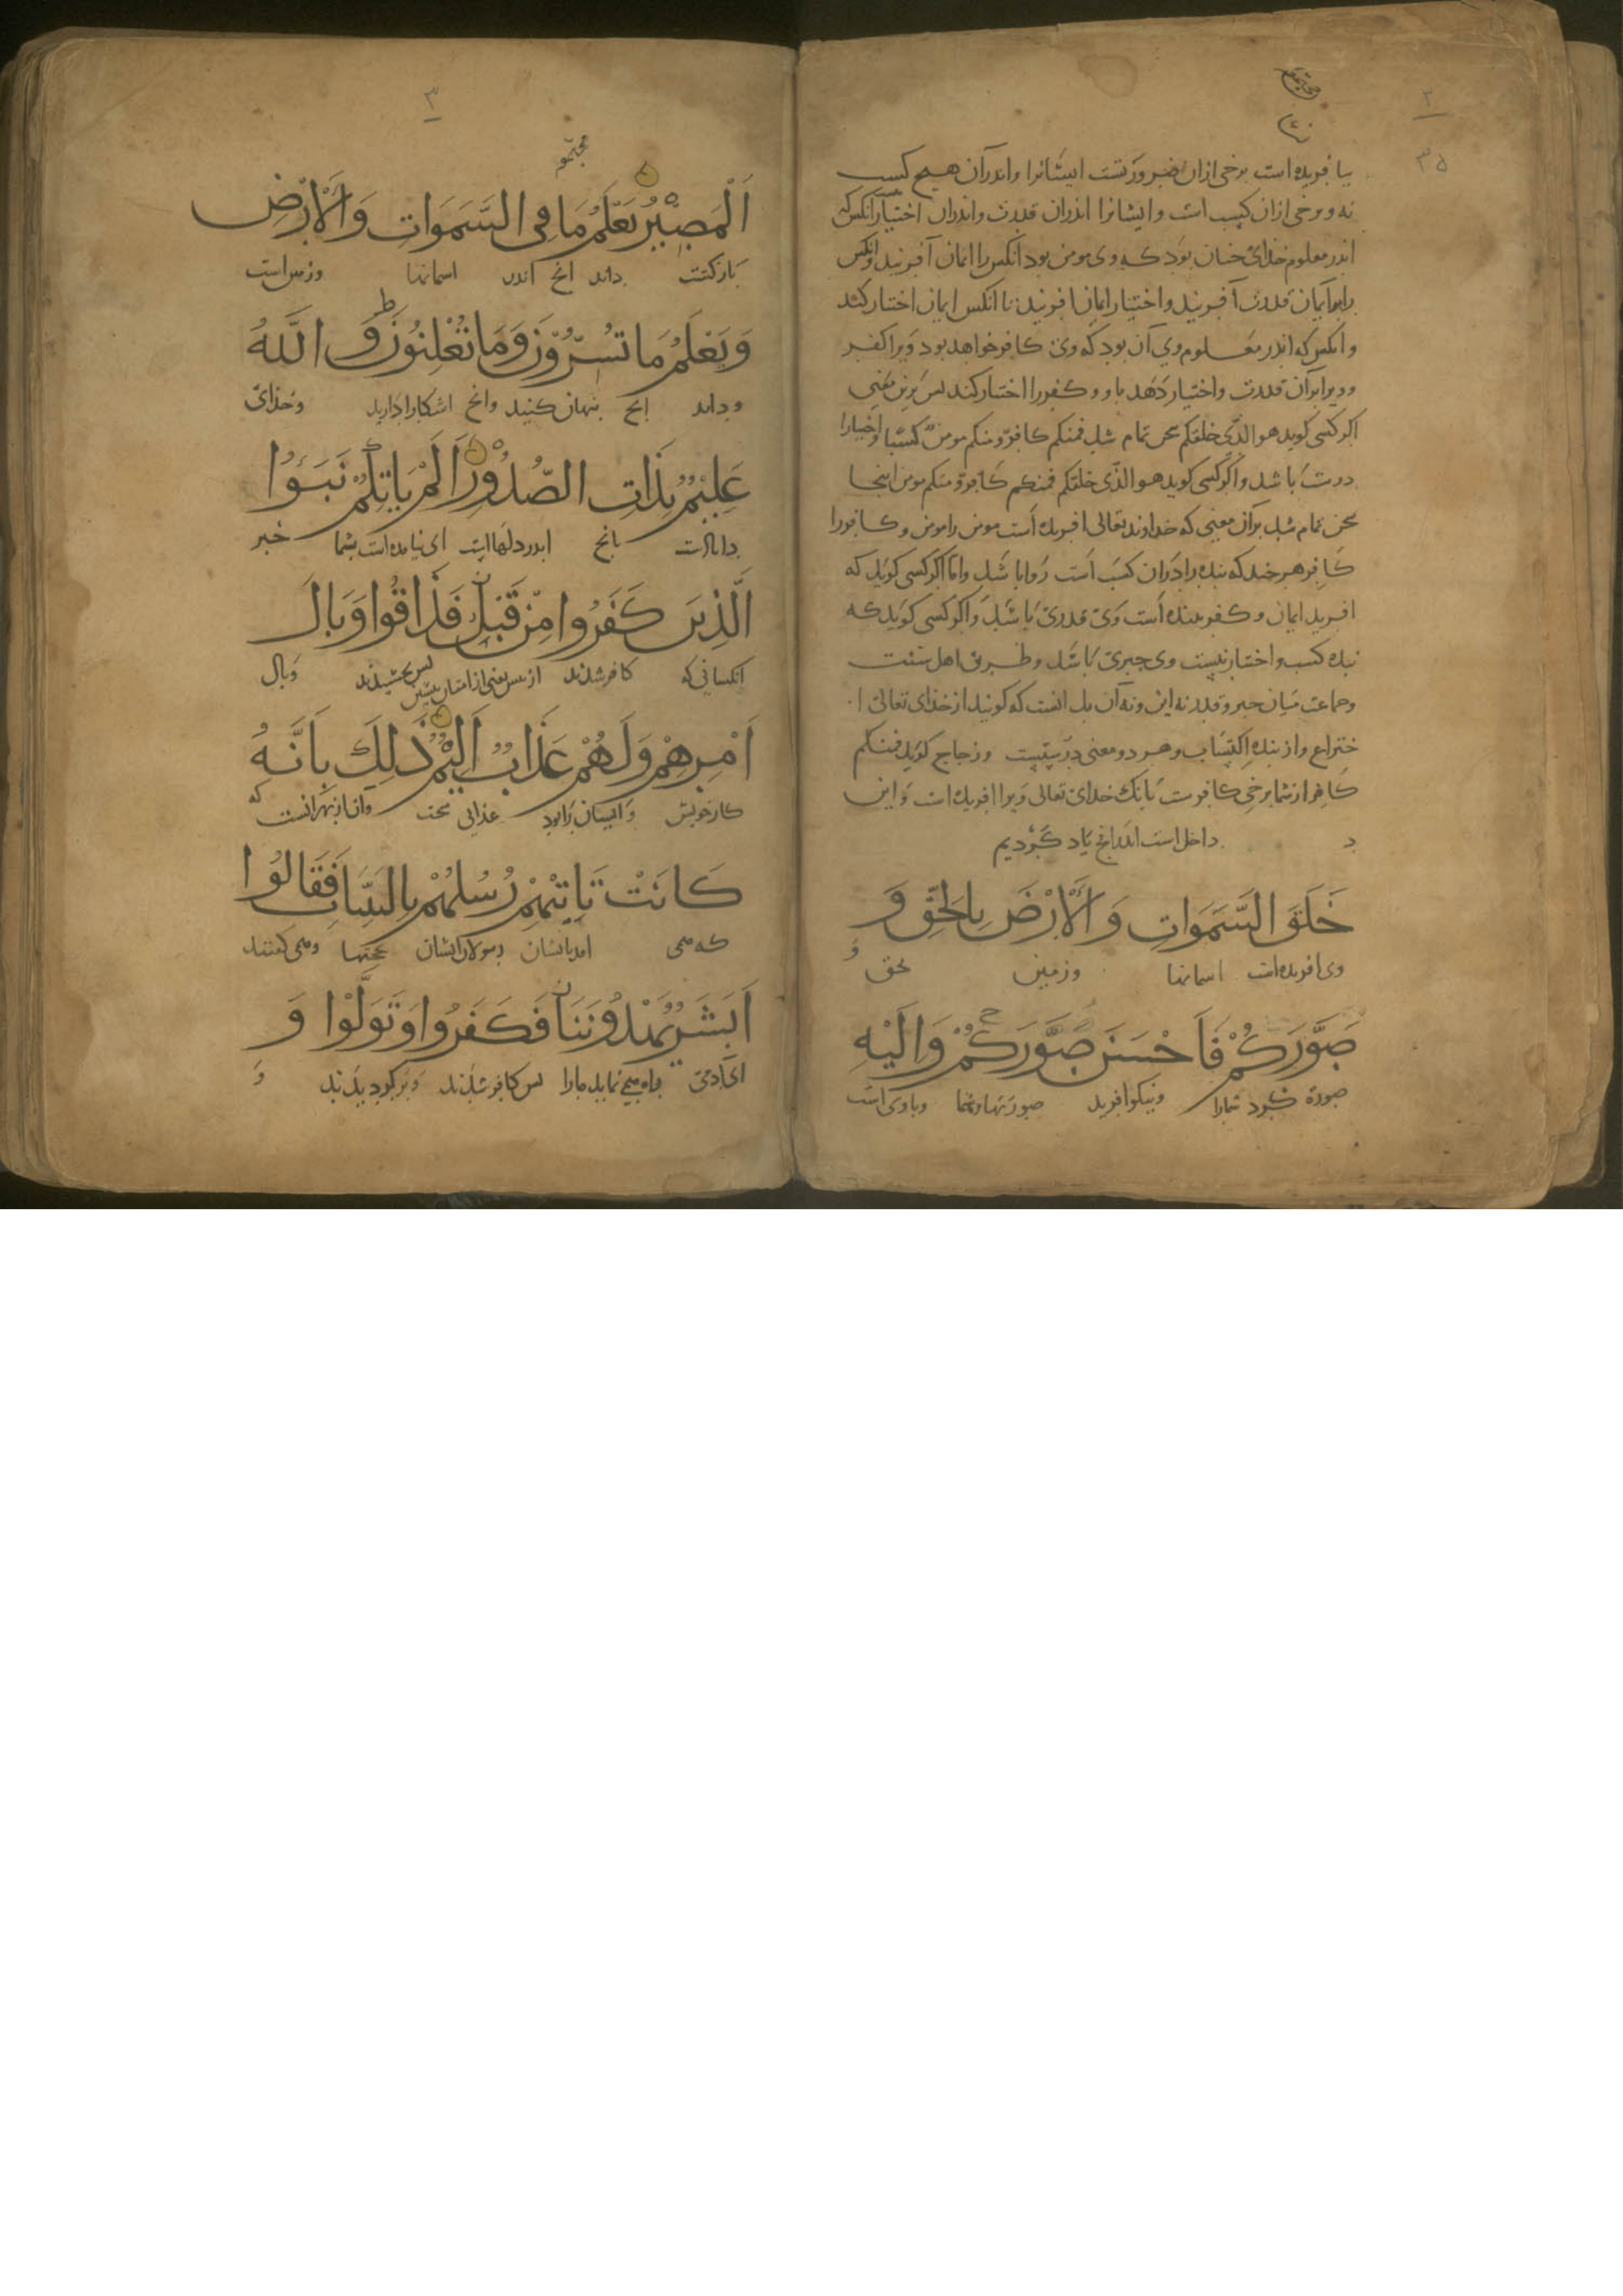 ۲
۳۵
بیافریده است برخی ازان ضرورتست ایشانرا واندرآن هیچ کسب
نه و برخی ازان کسب است وایشانرا اندران قدرت واندران اختیار آنکس که
اندر معلوم خدای چنان بود که وی مومن بود آنکس را ایمان آفرید وانکس
را برایمان قدرت آفرید واختیار ایمان افرید تا آنکس ایمان اختیار کند
وانکس که اندر معلوم وی آن بود که وی کافر خواهد بود ویرا کفر
وویرا برآن قدرت واختیار دهد باو و کفر را اختیار کند پس برین معنی
اکر کسی کوید هو الذی خلقکم سخن تمام شد فمنکم کافر ومنکم مومن کسبا واختیارا
درست باشد واکر کسی کوید هو الذی خلقکم فمنکم کافر ومنکم مومن اینجا
سخن تمام شد برآن معنی که خداوند تعالی افریده است مومن را مومن وکافر را
کافر هرچند که بنده را دران کسب است روا باشد واما اکر کسی کوید که
افرید ایمان وکفر بنده است وی قدری باشد واکر کسی کوید که
بنده کسب واختیار نیست وی جبری باشد وطریق اهل سنت
وجماعت میان جبر وقدر نه این ونه آن بل انست که کویند از خدای تعالی ا
ختراع واز بنده اکتساب وهر دو معنی درستست وزجاج کوید فمنکم
کافر از شما برخی کافرست بانک خدای تعالی ویرا افریده است واین
د داخل است اندر انچ یاد کردیم
خَلَقَ السَّمَوَاتِ وَالْأَرْضَ بِالْحَقِّ وَ
وی افریده است اسمانها وزمین بحق و
صَوَّرَكُمْ فَأَحْسَنَ صُوَرَكُمْ وَإِلَيْهِ
صورة کرد شمارا ونیکو افرید صورتهاء شما وباوی است
۳
الْمَصِيرُ يَعْلَمُ مَا فِي السَّمَوَاتِ وَالْأَرْضِ
بازکشت داند انچ اندر اسمانها وزمین است
وَيَعْلَمُ مَا تُسِرُّونَ وَمَا تُعْلِنُونَ وَاللَّهُ
وداند انچ پنهان کنید وانچ اشکارا دارید وخدای
عَلِيمٌ بِذَاتِ الصُّدُورِ أَلَمْ يَأْتِكُمْ نَبَؤُا
داناست بانچ اندر دلهااست ای نیامده است بشما خبر
الَّذِينَ كَفَرُوا مِنْ قَبْلُ فَذَاقُوا وَبَالَ
انکسانی که کافر شدند از پیش یعنی از امتان پیشین پس بچشیدند وبال
أَمْرِهِمْ وَلَهُمْ عَذَابٌ أَلِيمٌ ذَلِكَ بِأَنَّهُ
کار خویش وایشان را بود عذابی سخت وان از بهر انست که
كَانَتْ تَأْتِيهِمْ رُسُلُهُمْ بِالْبَيِّنَاتِ فَقَالُوا
که می امد بایشان رسولان ایشان بحجتها ومی کفتند
أَبَشَرٌ يَهْدُونَنَا فَكَفَرُوا وَتَوَلَّوْا وَ
ای آدمی راه می نماید مارا پس کافر شدند وبرکردیدند و